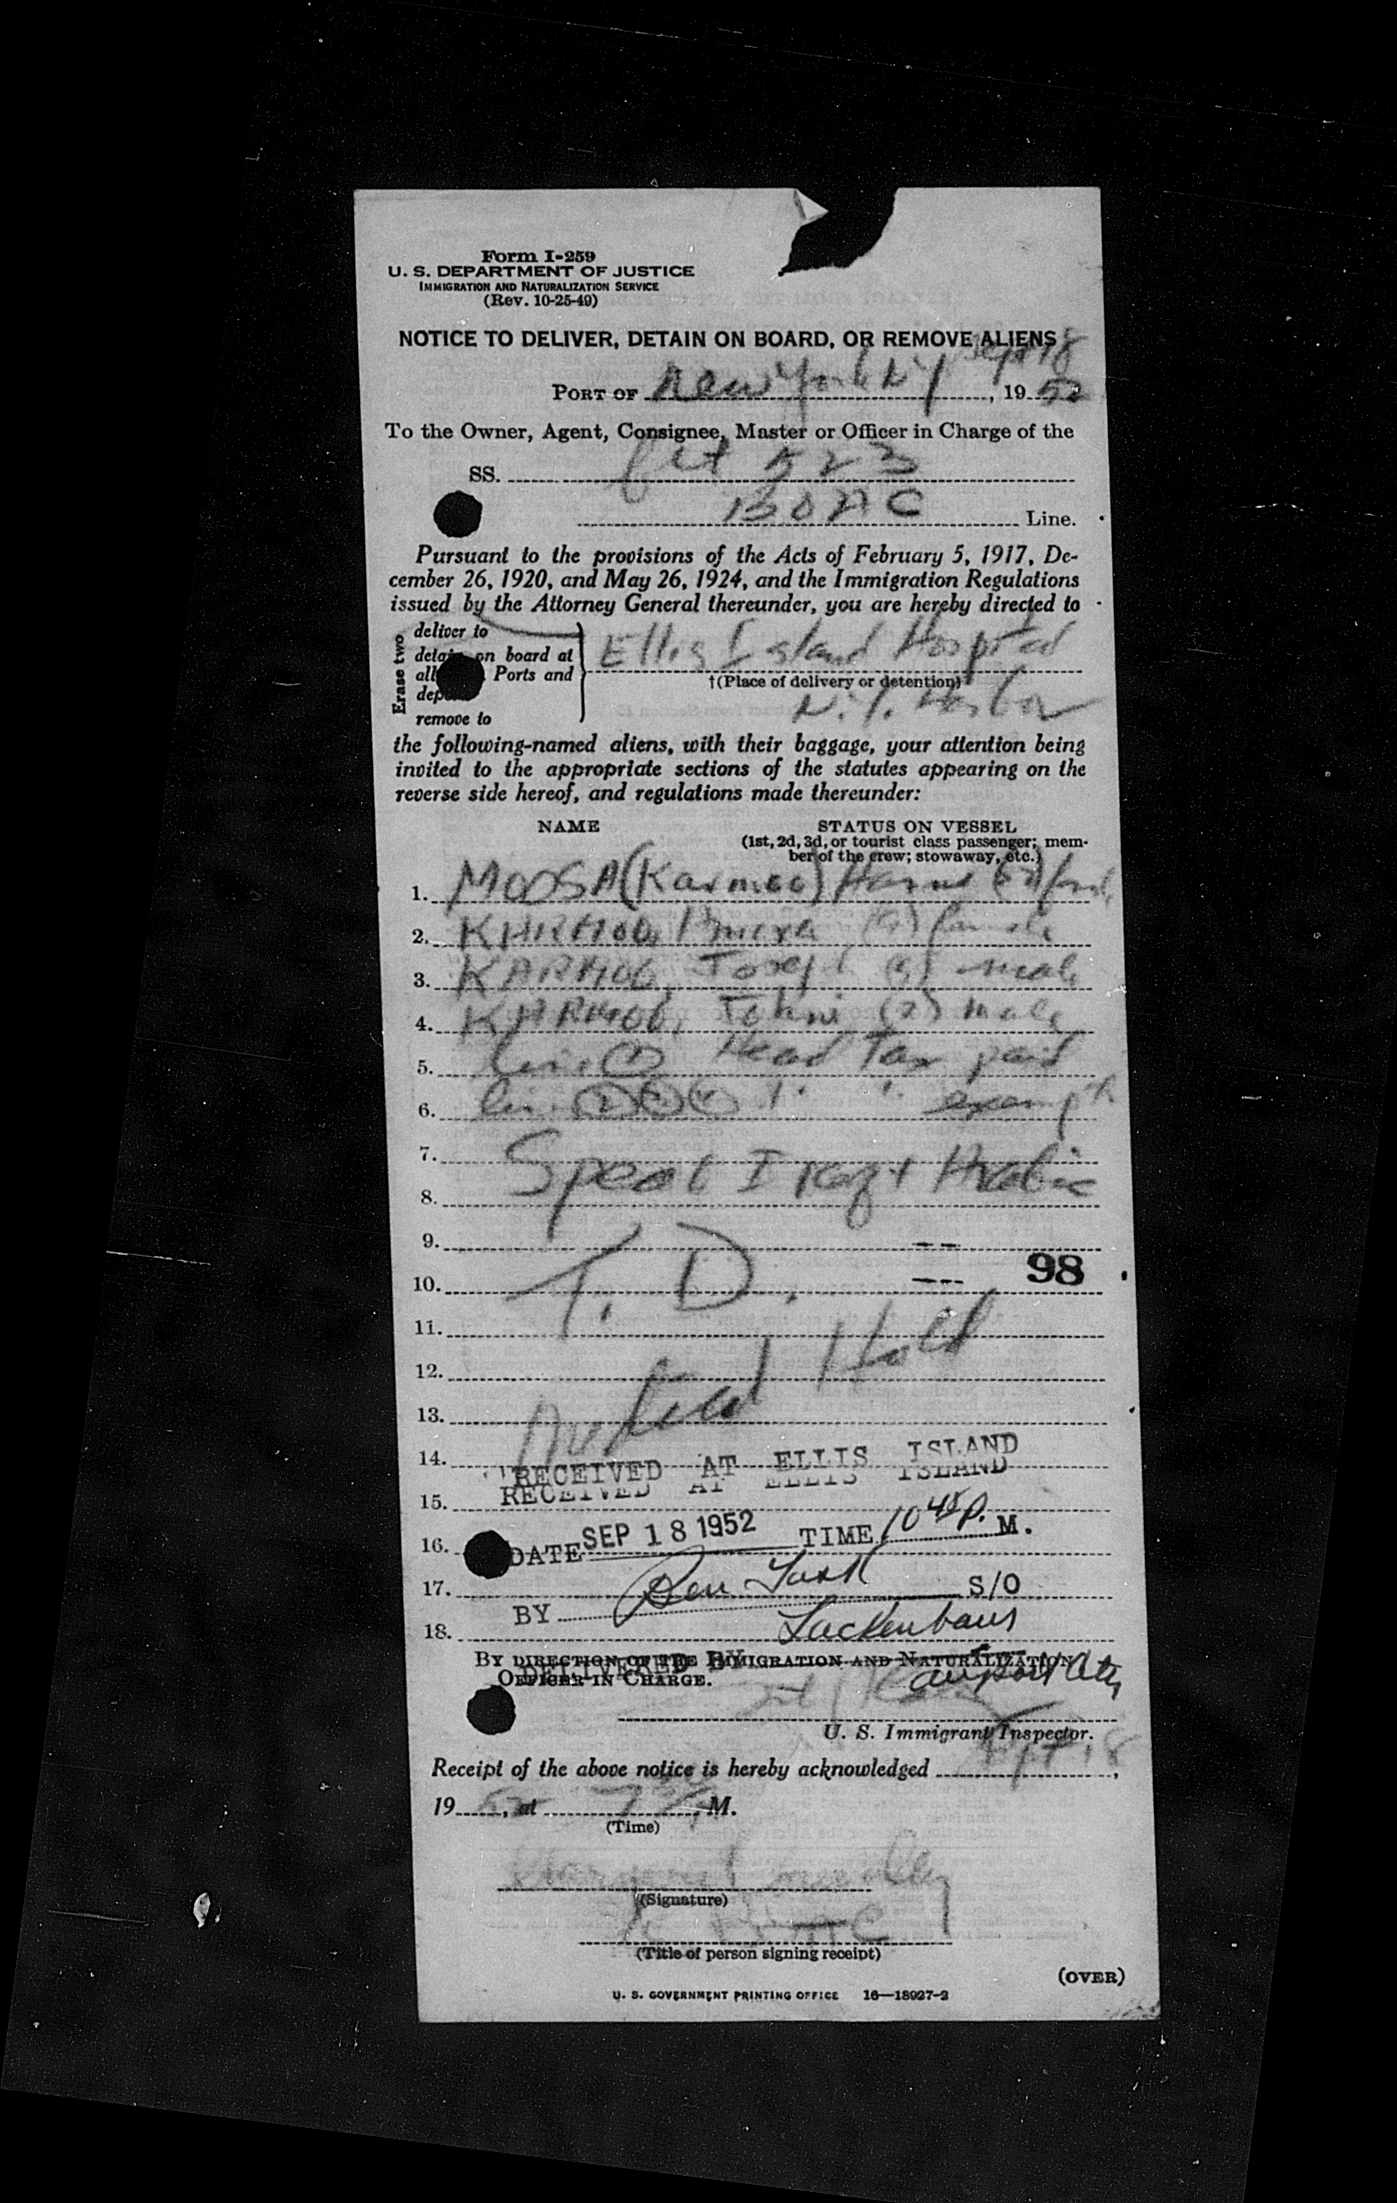 Form I-259
U. S. DEPARTMENT OF JUSTICE
IMMIGRATION AND NATURALIZATION SERVICE
(Rev. 10-25-49)
NOTICE TO DELIVER, DETAIN ON BOARD, OR REMOVE ALIENS
Sept 18
PORT OF New York N Y, 19 52
To the Owner, Agent, Consignee, Master or Officer in Charge of the
SS. 523
BOAC Line.
Pursuant to the provisions of the Acts of February 5, 1917, De-
cember 26, 1920, and May 26, 1924, and the Immigration Regulations
issued by the Attorney General thereunder, you are hereby directed to
Erase two
deliver to
detain on board at
all Ports and
remove to
Ellis Island Hospital
†(Place of delivery or detention)
N. Y. Harbor
the following-named aliens, with their baggage, your attention being
invited to the appropriate sections of the statutes appearing on the
reverse side hereof, and regulations made thereunder:
NAME STATUS ON VESSEL
(1st, 2d, 3d, or tourist class passenger; mem-
ber of the crew; stowaway, etc.)
1. MOOSA (Karmoo)
2. KARMOO, female
3. KARMOO, Joseph male
4. KARMOO, (2) male
5. Line (1) Head Tax paid
6. exempt
7.
8. Speak Iraqi Arabic
9.
10. T. D. 98
11.
12.
13. Medical Hold
14.
RECEIVED AT ELLIS ISLAND
RECEIVED AT ELLIS ISLAND
15.
16. DATE SEP 18 1952 TIME 10 45 P. M.
17. S/O
BY Ben
18.
BY DIRECTION OF THE IMMIGRATION AND NATURALIZATION
DELIVERED BY
OFFICER IN CHARGE.
U. S. Immigrant Inspector.
Receipt of the above notice is hereby acknowledged Sept 18,
19 52, at 7 M.
(Time)
Margaret
(Signature)
BOAC
(Title of person signing receipt)
(OVER)
U. S. GOVERNMENT PRINTING OFFICE 16—18927-2